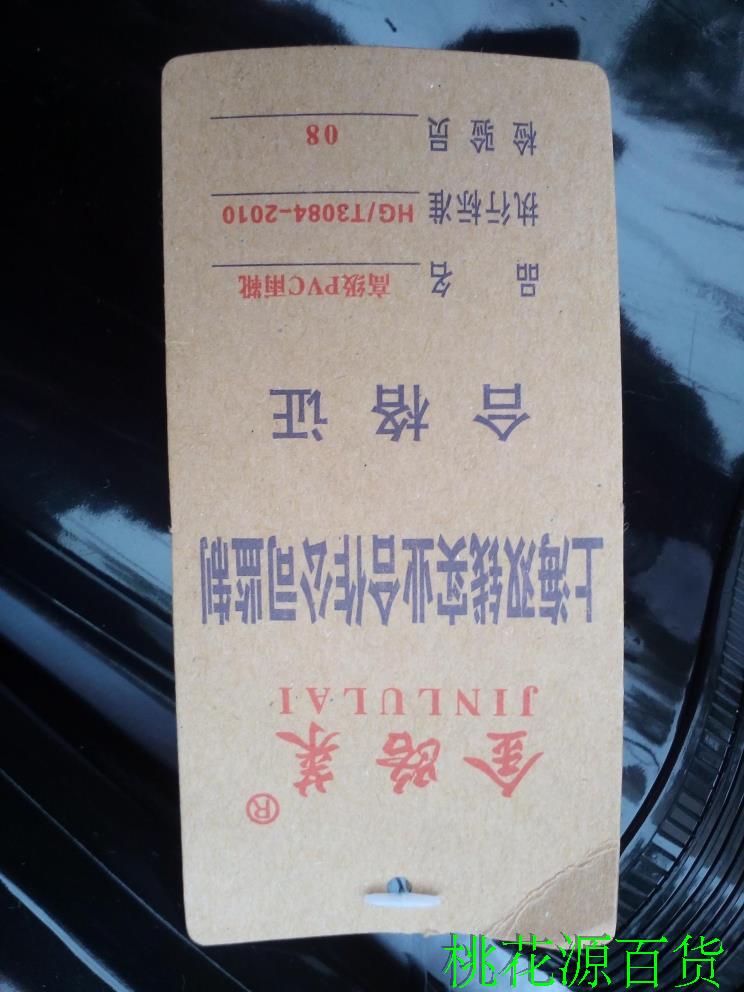 金路莱®
JINLULAI
上海双钱实业合作公司监制
合格证
品名 高级PVC雨靴
执行标准 HG/T3084-2010
检验员 08
桃花源百货